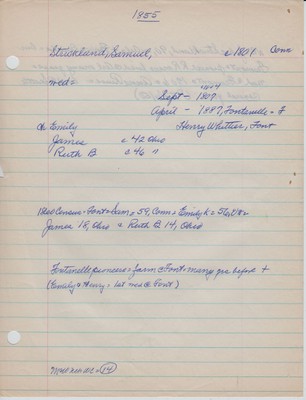 1855
Strickland, Samuel, c 1801 Conn
med=
Sept - 1808
April - 1887, Fontenelle = F
ch Emily Henry Whittier, Font
James c 42 Ohio
Ruth B c 46 "
1860 Census = Font = Sam = 59, Conn = Emily K = 56, Vt =
James 18, Ohio = Ruth B 14, Ohio
Fontenelle pioneers = farm c Font = many yrs before +
(Emily & Henry = 1st med @ Font)
14